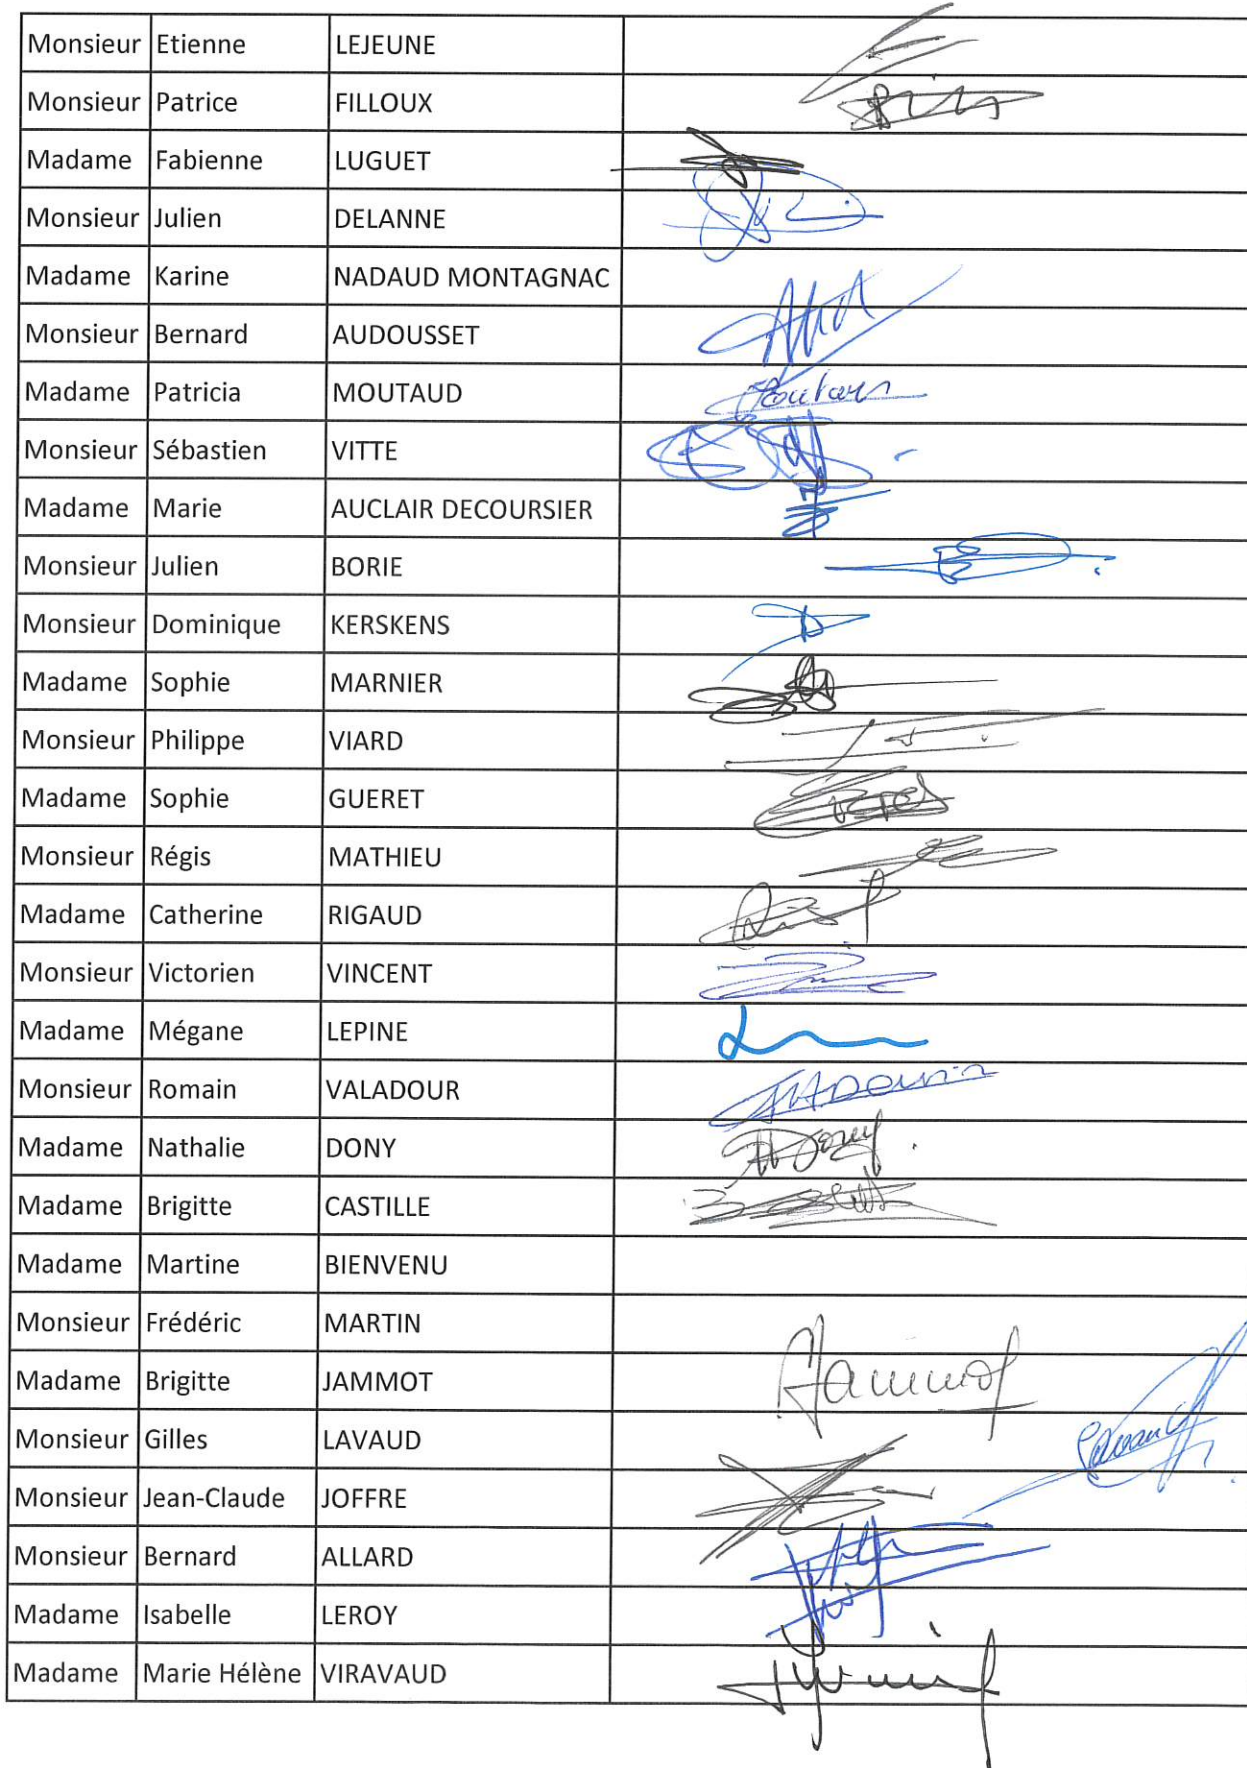 Monsieur Etienne LEJEUNE
Monsieur Patrice FILLOUX
Madame Fabienne LUGUET
Monsieur Julien DELANNE
Madame Karine NADAUD MONTAGNAC
Monsieur Bernard AUDOUSSET
Madame Patricia MOUTAUD
Monsieur Sébastien VITTE
Madame Marie AUCLAIR DECOURSIER
Monsieur Julien BORIE
Monsieur Dominique KERSKENS
Madame Sophie MARNIER
Monsieur Philippe VIARD
Madame Sophie GUERET
Monsieur Régis MATHIEU
Madame Catherine RIGAUD
Monsieur Victorien VINCENT
Madame Mégane LEPINE
Monsieur Romain VALADOUR
Madame Nathalie DONY Dony
Madame Brigitte CASTILLE
Madame Martine BIENVENU
Monsieur Frédéric MARTIN
Madame Brigitte JAMMOT Jammot
Monsieur Gilles LAVAUD
Monsieur Jean-Claude JOFFRE
Monsieur Bernard ALLARD
Madame Isabelle LEROY
Madame Marie Hélène VIRAVAUD